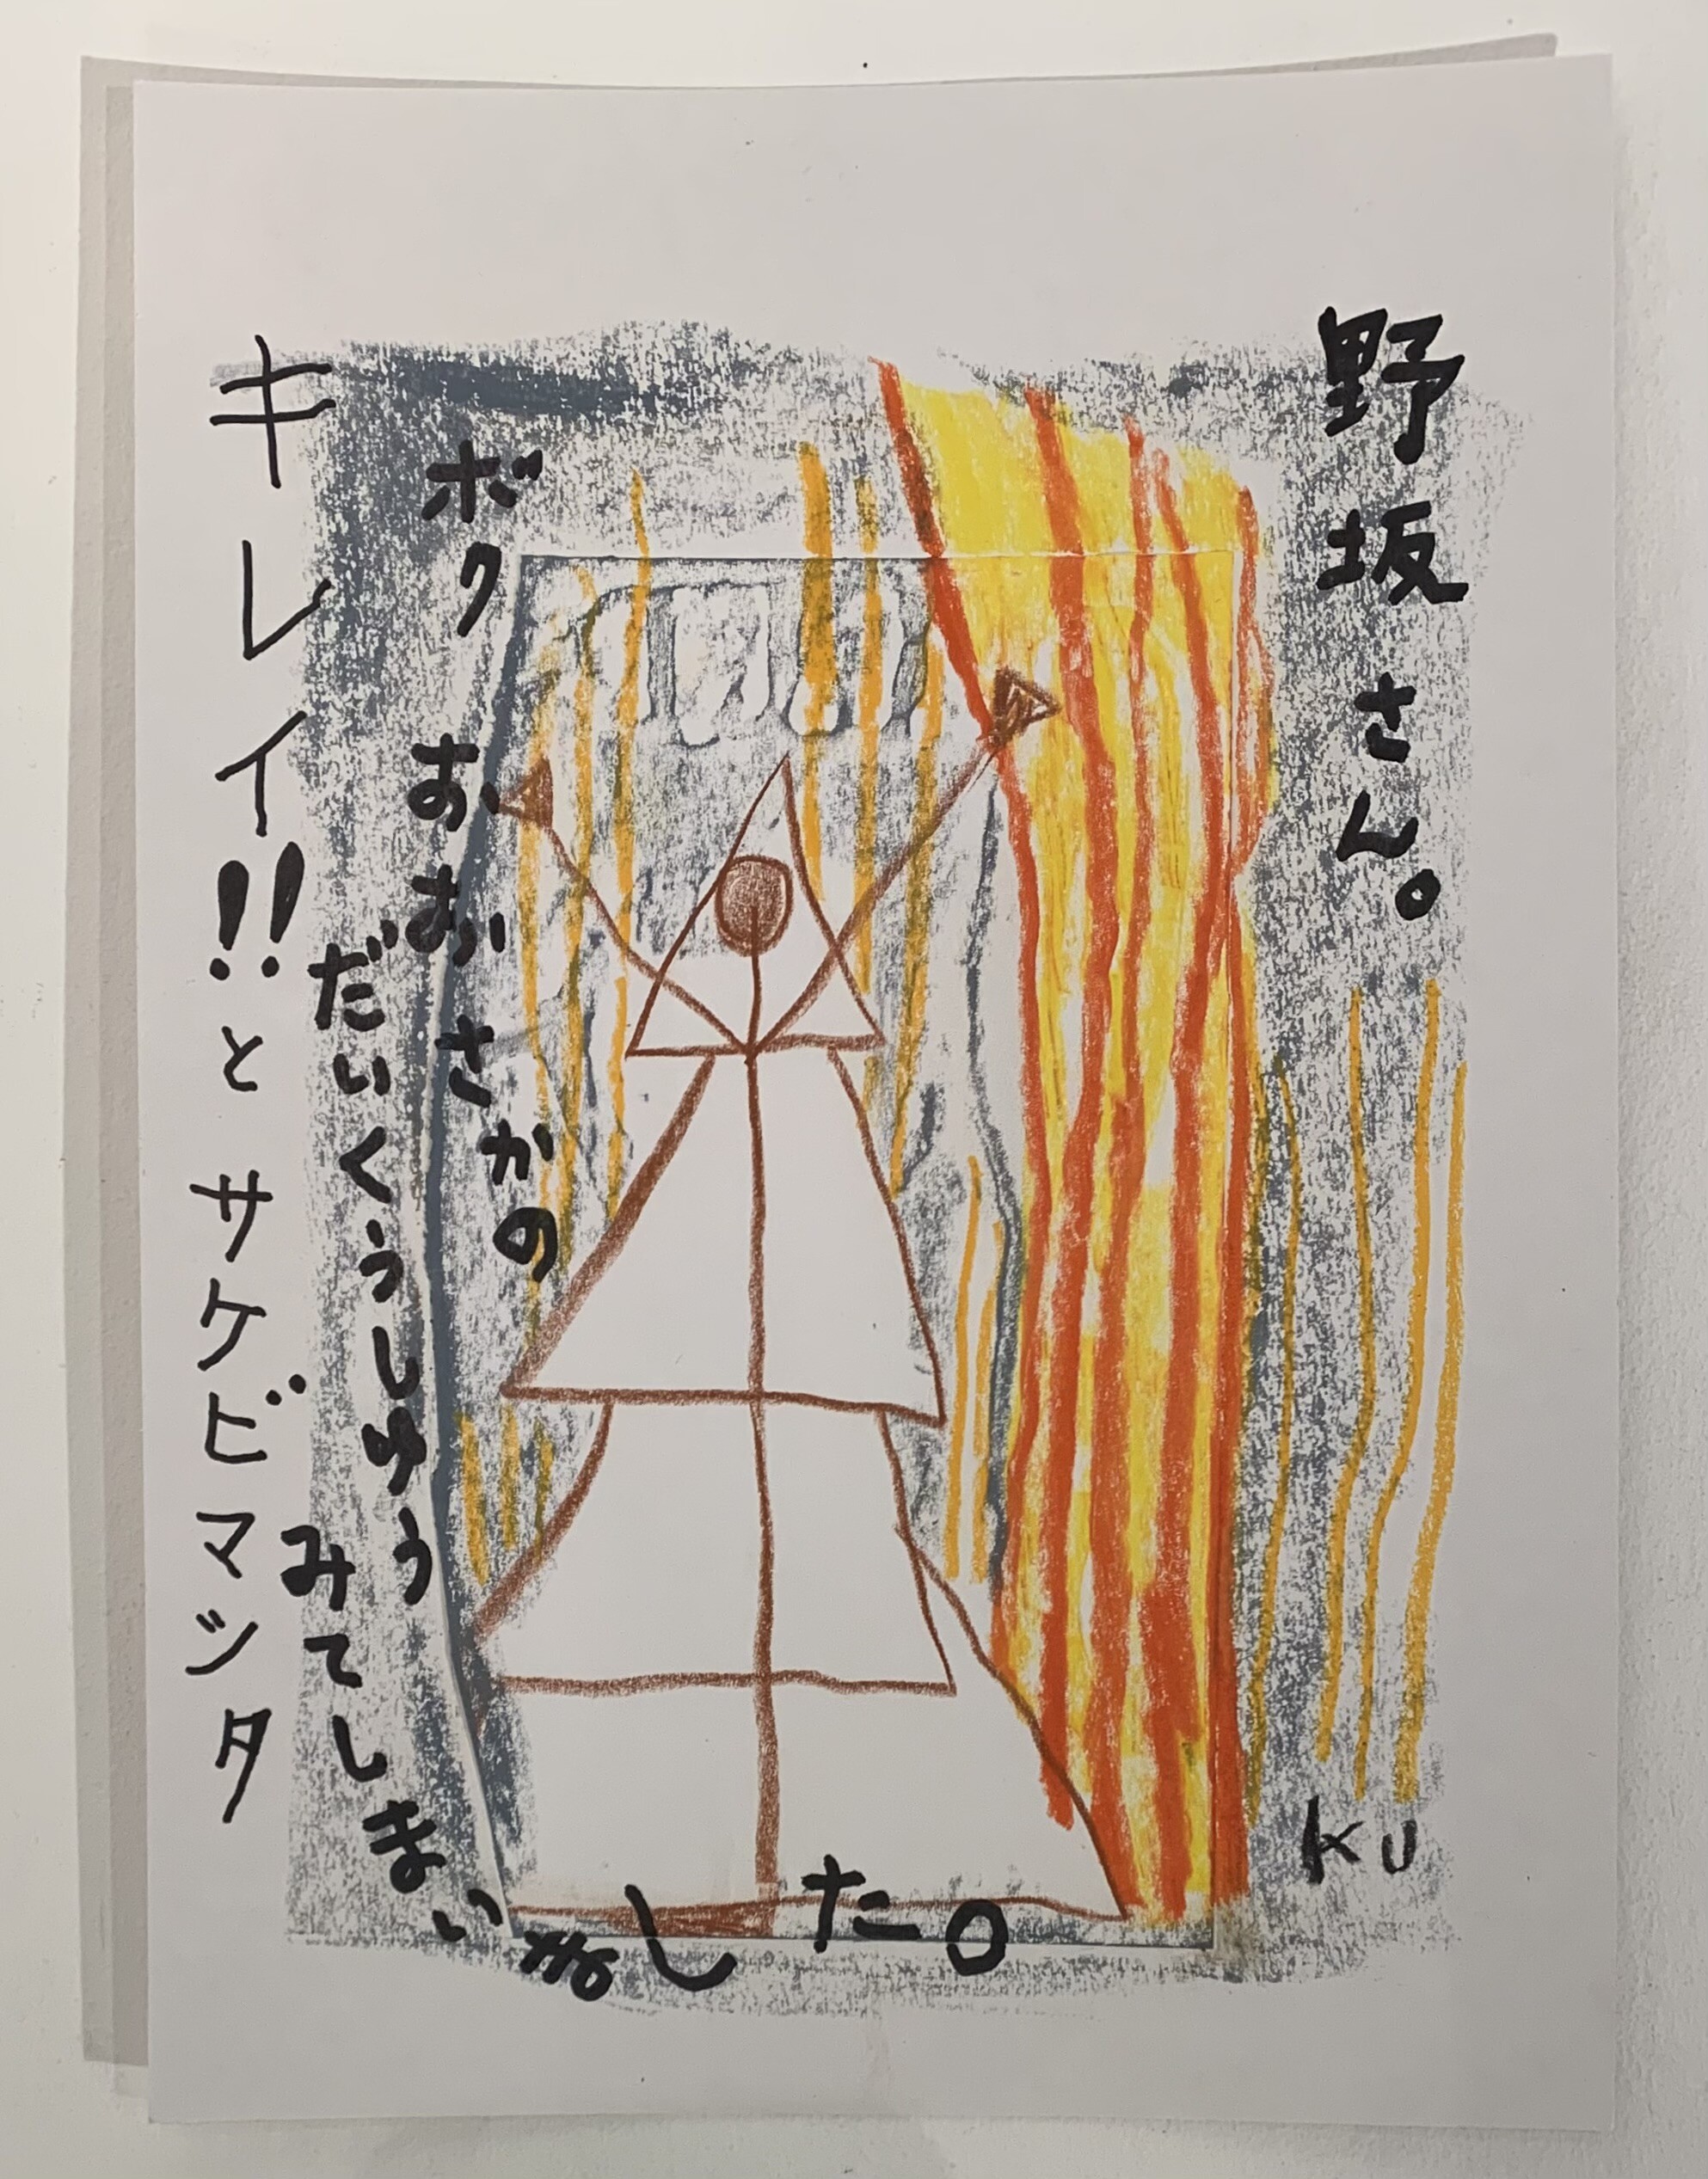 野坂さん。
ボク おおさかの
だいくうしゅう
みてしまいました。
キレイ!!と サケビマシタ
KU